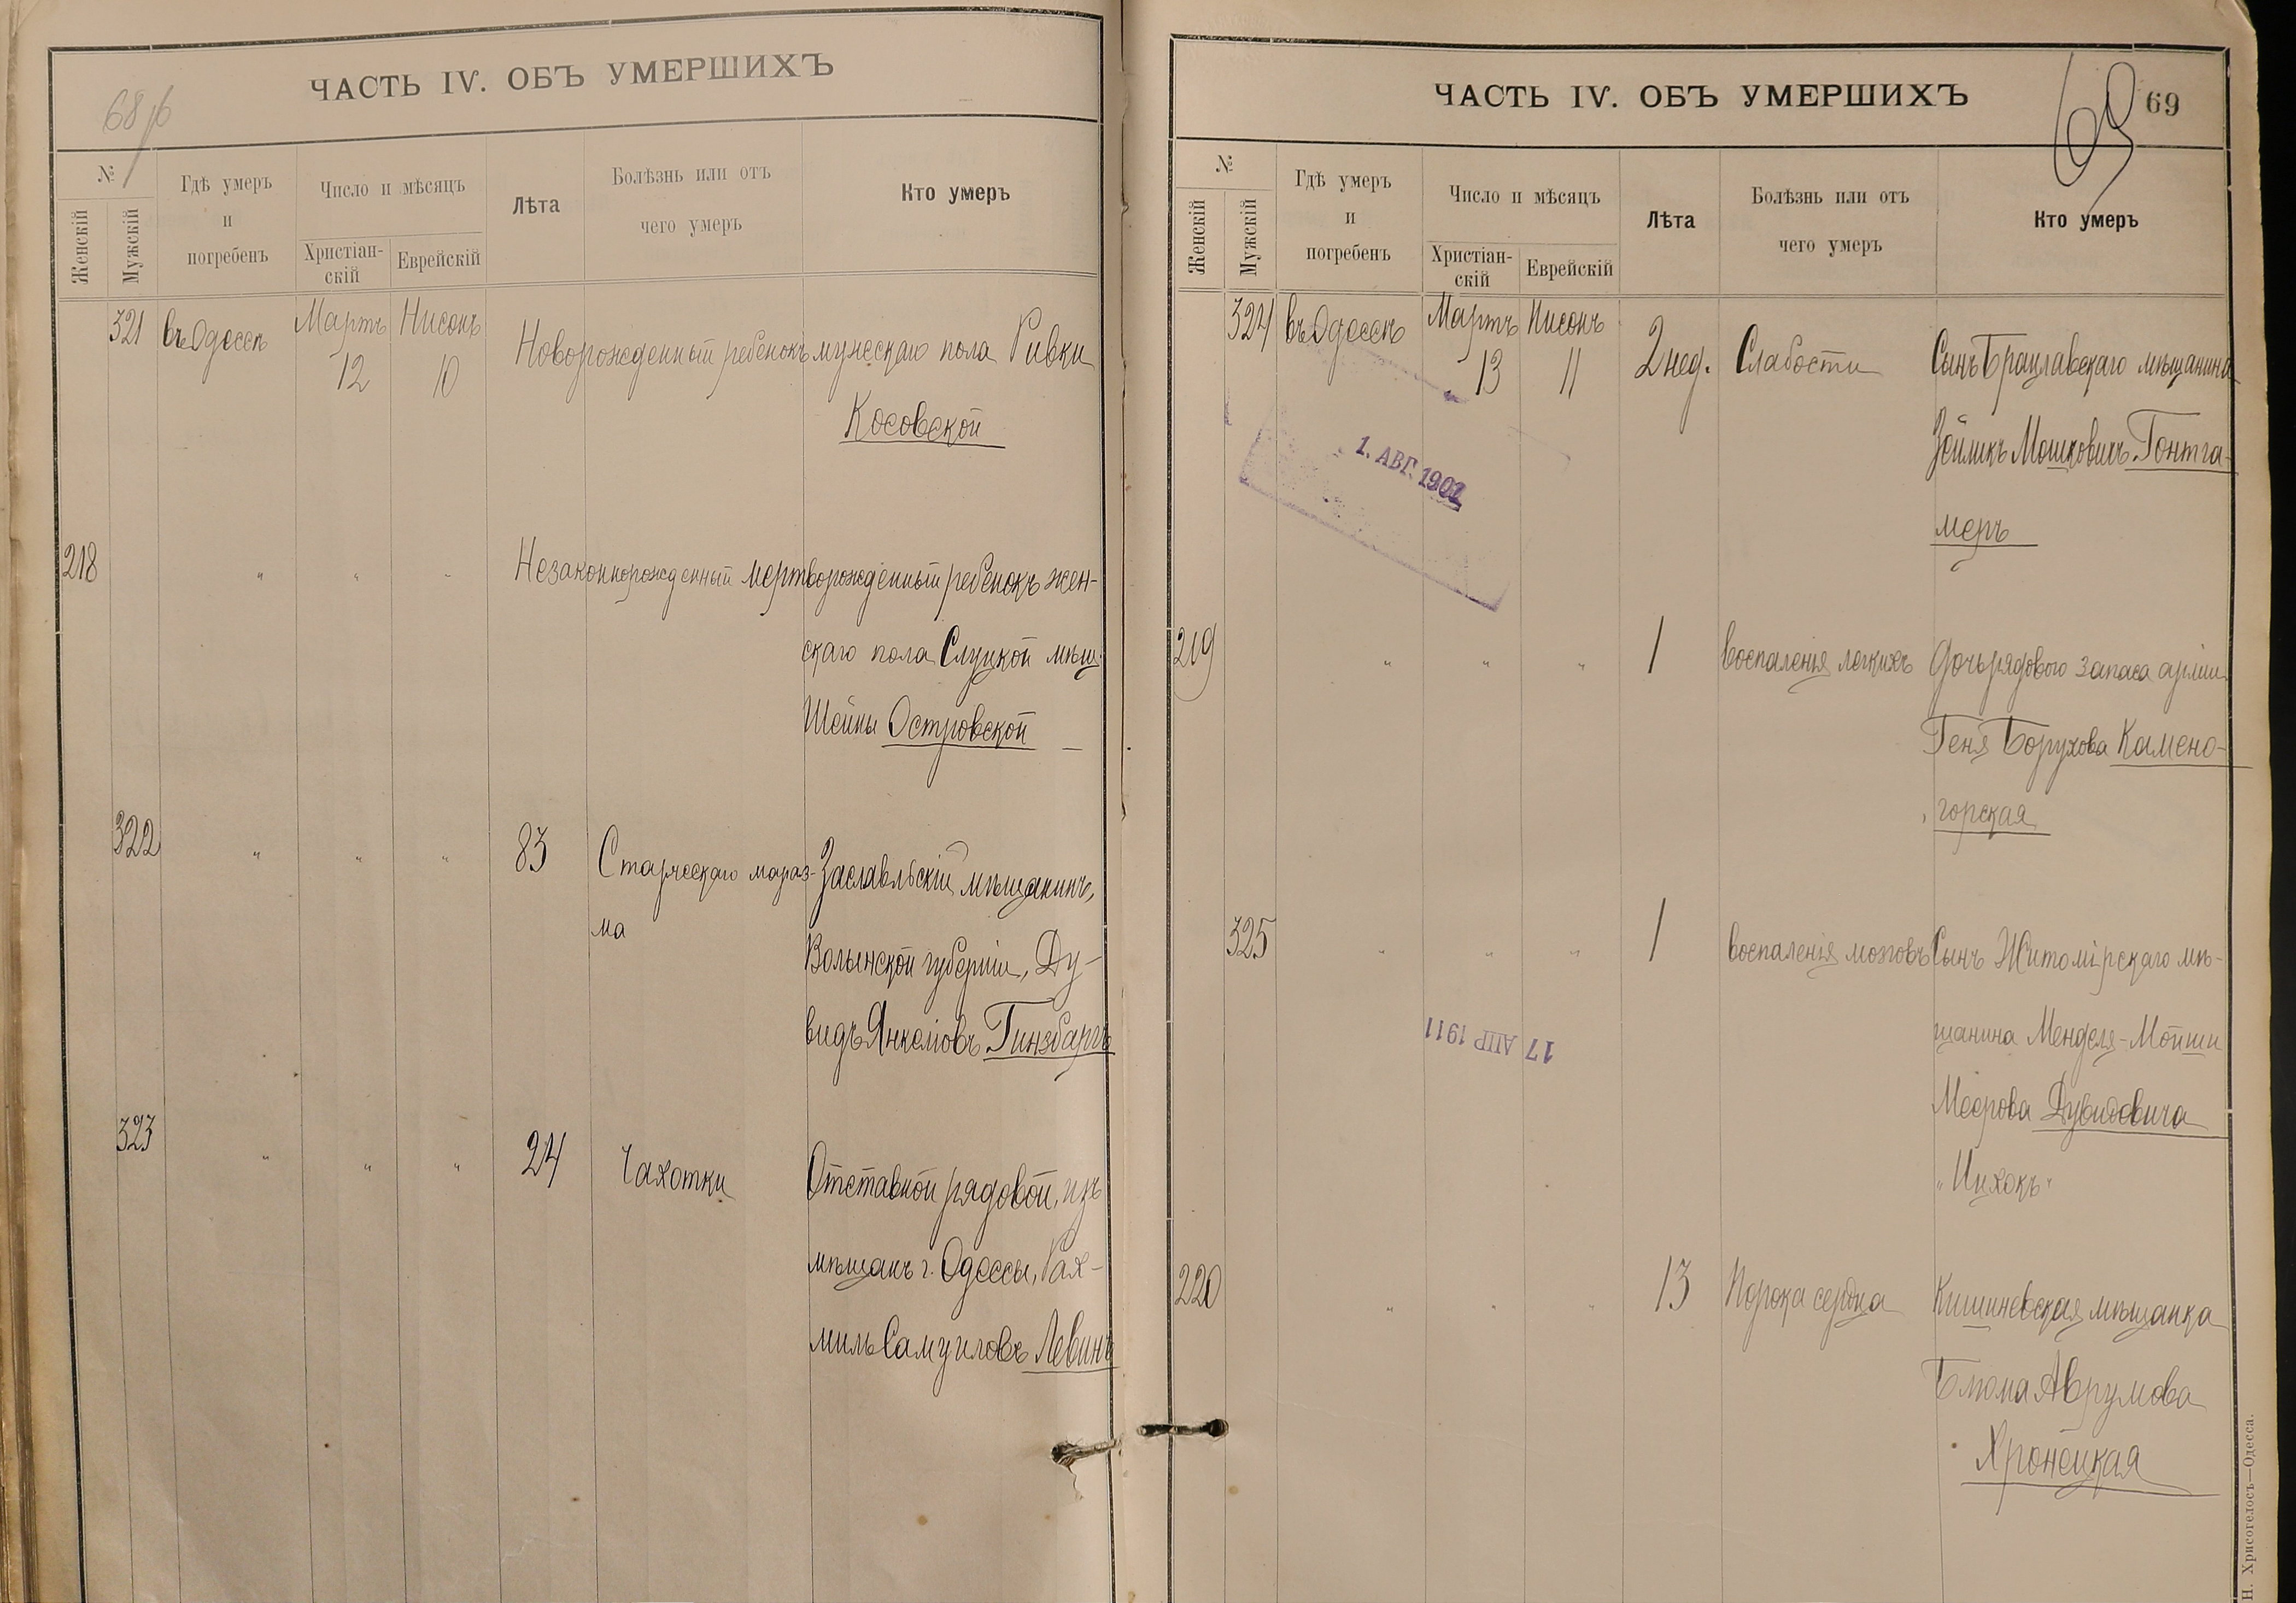 68 об
ЧАСТЬ IV. ОБЪ УМЕРШИХЪ
№
Женскій
Мужскій
Гдѣ умеръ
и
погребенъ
Число и мѣсяцъ
Христіан-
скій
Еврейскій
Лѣта
Болѣзнь или отъ
чего умеръ
Кто умеръ
321 въ Одессѣ Мартъ 12 Нисонъ 10 Новорожденный ребенокъ мужескаго пола Ривки
Косовской
218 " " " Незаконнорожденный мертворожденный ребенокъ жен-
скаго пола Слуцкой мѣщ.
Шейны Островской
322 " " " 83 Старческаго мараз- Заславльскій мѣщанинъ,
ма
Волынской губерніи, Ду-
видъ Янкелiовъ Гинзбаргъ
323 " " " 24 Чахотки Отставной рядовой, изъ
мѣщанъ г. Одессы, Рах-
миль Самуиловъ Левинъ
ЧАСТЬ IV. ОБЪ УМЕРШИХЪ
69
69
№
Женскій
Мужскій
Гдѣ умеръ
и
погребенъ
Число и мѣсяцъ
Христіан-
скій
Еврейскій
Лѣта
Болѣзнь или отъ
чего умеръ
Кто умеръ
324 въ Одессѣ Мартъ 13 Нисонъ 11 2 нед. Слабости Сынъ Брацлавскаго мѣщанина
Зейликъ Мошковичъ Гонтга-
меръ
1. АВГ. 1902
219 " " " 1 воспаленія легкихъ дочь рядового запаса арміи
Геня Борухова Камено-
горская
325 " " " 1 воспаленія мозговъ Сынъ Житомірскаго мѣ-
щанина Менделя-Мойши
Меерова Дувидовича
"Ицхокъ"
17 АПР 1911
220 " " " 13 Порока сердца Кишиневская мѣщанка
Блюма Аврумова
Хронецкая
Н. Хрисогелосъ—Одесса.